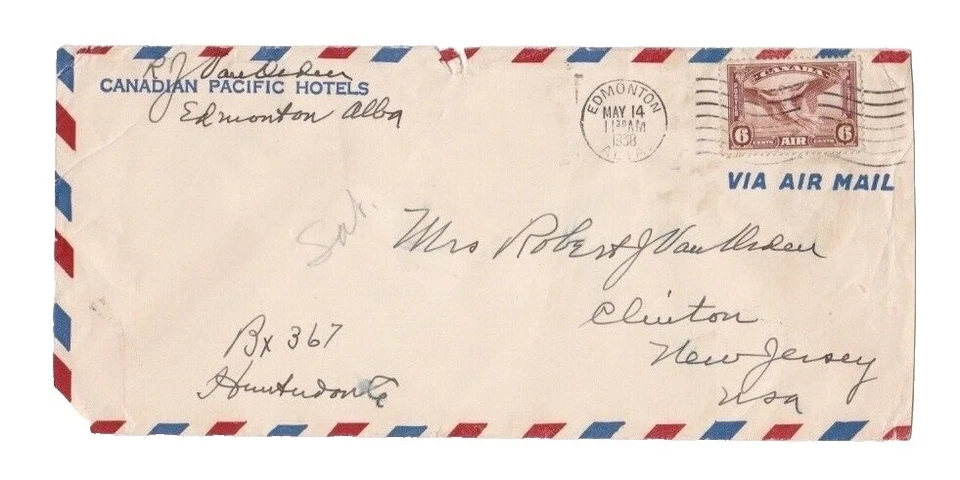 R J Van Orden
CANADIAN PACIFIC HOTELS
Edmonton Alba
EDMONTON
MAY 14
11 30 AM
1938
CANADA
6 6
CENTS AIR CENTS
VIA AIR MAIL
Sat.
Mrs Robert J Van Orden
Clinton
New Jersey
USA
Bx 367
Hunterdon Co